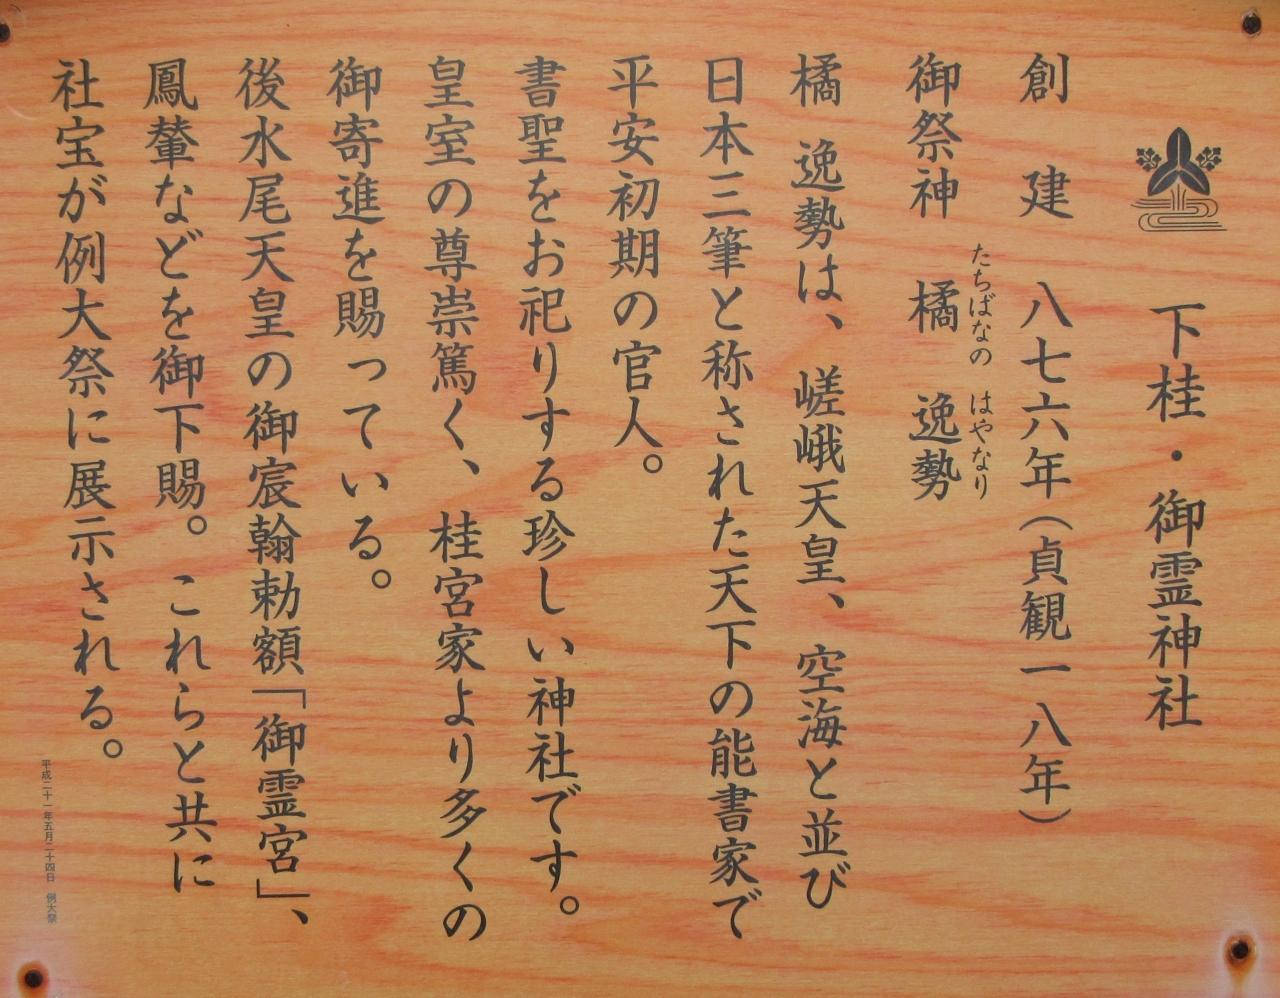 下桂・御霊神社
創　建　八七六年（貞観一八年）
たちばなの　はやなり
御祭神　橘　逸勢
橘　逸勢は、嵯峨天皇、空海と並び
日本三筆と称された天下の能書家で
平安初期の官人。
書聖をお祀りする珍しい神社です。
皇室の尊崇篤く、桂宮家より多くの
御寄進を賜っている。
後水尾天皇の御宸翰勅額「御霊宮」、
鳳輦などを御下賜。これらと共に
社宝が例大祭に展示される。
平成二十一年五月二十四日　例大祭